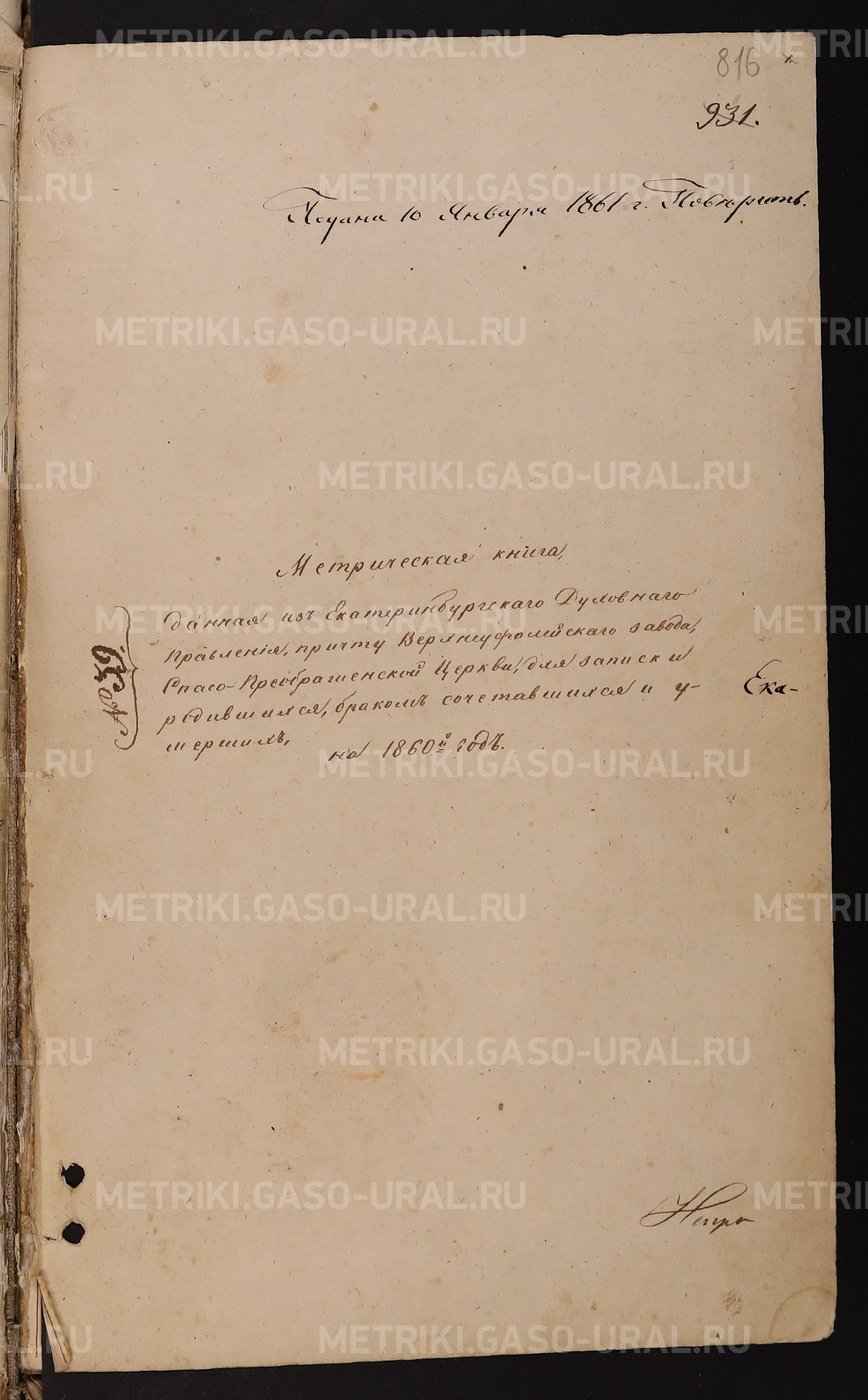 816
931.
Подана 10 Января 1861 г. Повѣрить.
Метрическая книга,
данная изъ Екатеринбургскаго Духовнаго
Правленія, причту Верхнеуфалейскаго завода,
Спасо-Преображенской Церкви, для записки
родившихся, бракомъ сочетавшихся и у-
мершихъ,
на 1860й годъ.
№ 59.
Ека-
METRIKI.GASO-URAL.RU